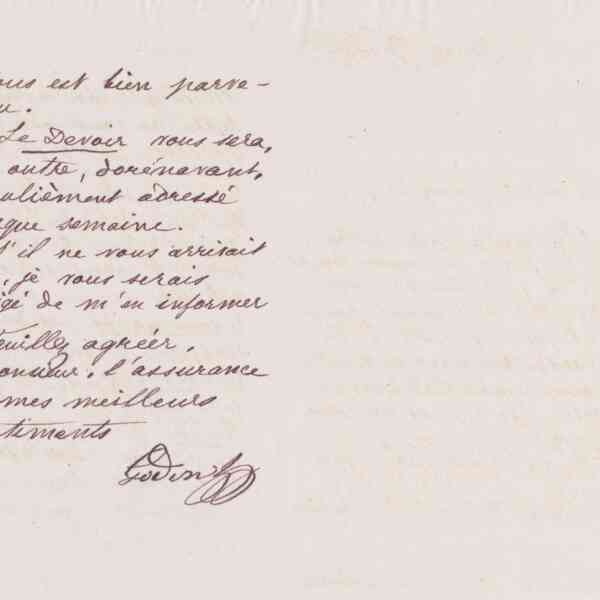 ous est bien parve-
u.
Le Devoir vous sera,
outre, dorénavant,
ulièment adressé
que semaine.
S'il ne vous arrivait
, je vous serais
igé de m'en informer
euillez agréer,
onsieur, l'assurance
mes meilleurs
timents
Godin